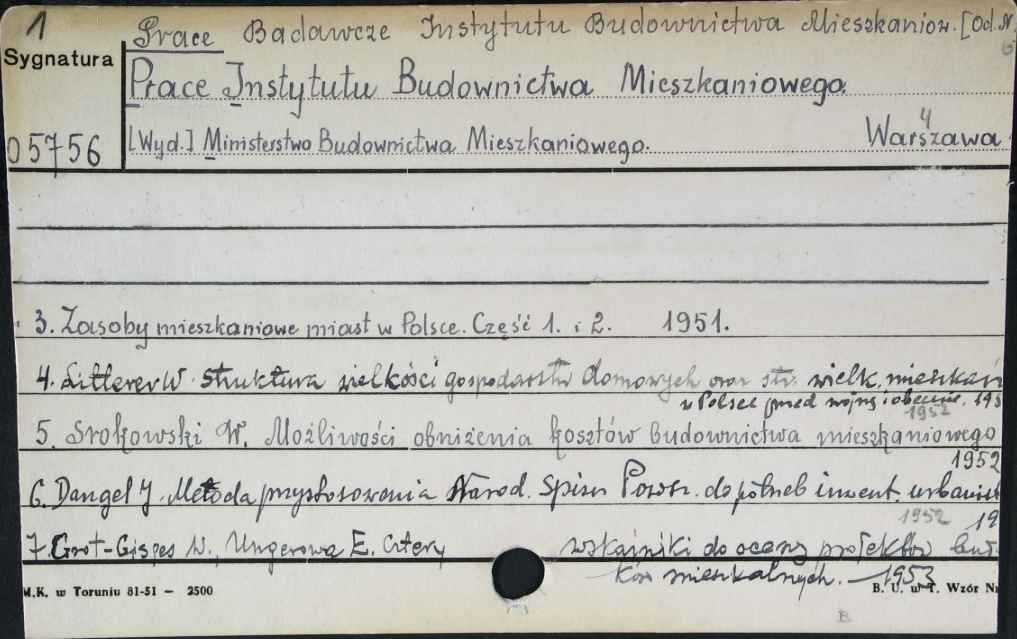 1
Prace Badawcze Instytutu Budownictwa Mieszkaniow. [Od. N.
6
Sygnatura
Prace Instytutu Budownictwa Mieszkaniowego.
4
05756 [Wyd.] Ministerstwo Budownictwa Mieszkaniowego. Warszawa
3. Zasoby mieszkaniowe miast w Polsce. Część 1. i 2. 1951.
4. Litterer W. struktura wielkości gospodarstw domowych oraz str. wielk. mieszkań
w Polsce przed wojną i obecnie. 195
1952
5. Srokowski W. Możliwości obniżenia kosztów budownictwa mieszkaniowego
1952
6. Dangel J. Metoda przystosowania Narod. Spisu Powsz. do potrzeb inwent. urbanist
1952 19
7. Grot-Gispes W., Ungerowa E. Cztery wskaźniki do oceny projektów bud
ków mieszkalnych. — 1953
M.K. w Toruniu 81-51 — 2500 B. U. w T. Wzór Nr
B